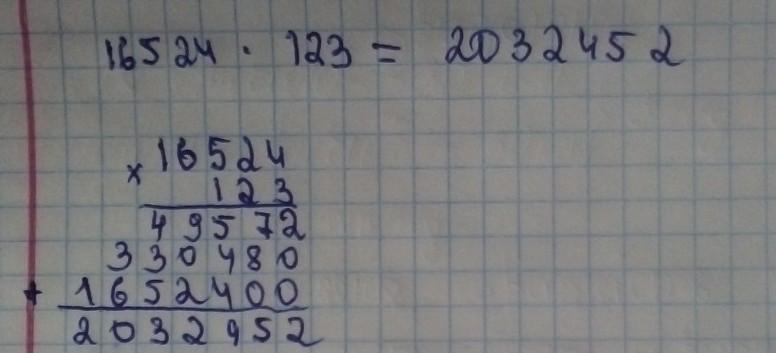 16524 · 123 = 2032452
× 16524
123
49572
330480
+ 1652400
2032952